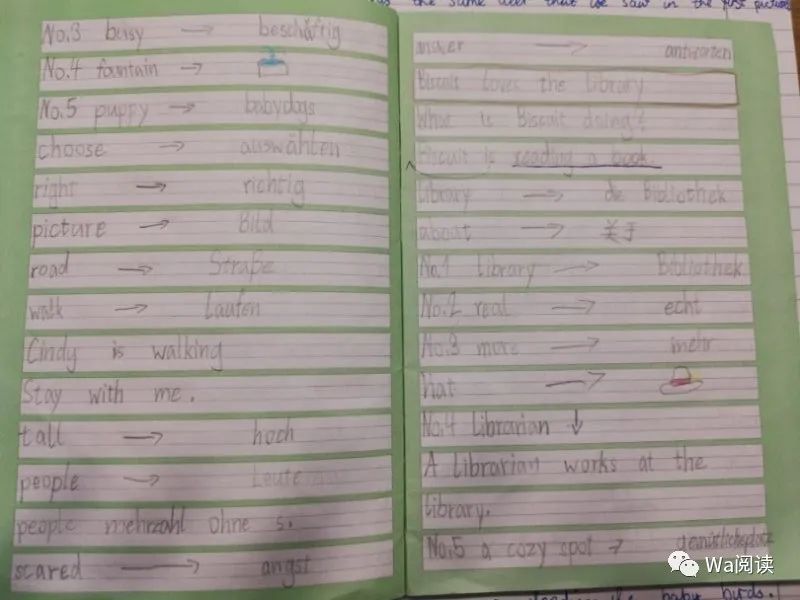 the same deer that we saw in the first picture
No.3 busy → beschäftig
No.4 fountain →
No.5 puppy → babydogs
choose → auswählen
right → richtig
picture → Bild
road → Straße
walk → Laufen
Cindy is walking
Stay with me.
tall → hoch
people → Leute
people mehrzahl ohne s.
scared → angst
→ antworten
Biscuit Loves the Library
What is Biscuit doing?
Biscuit is reading a book.
Library → die Bibliothek
about → 关于
No.1 Library → Bibliothek
No.2 real → echt
No.3 more → mehr
hat →
No.4 Librarian ↓
A Librarian works at the
Library.
No.5 a cozy spot →
the baby birds.
Wa阅读